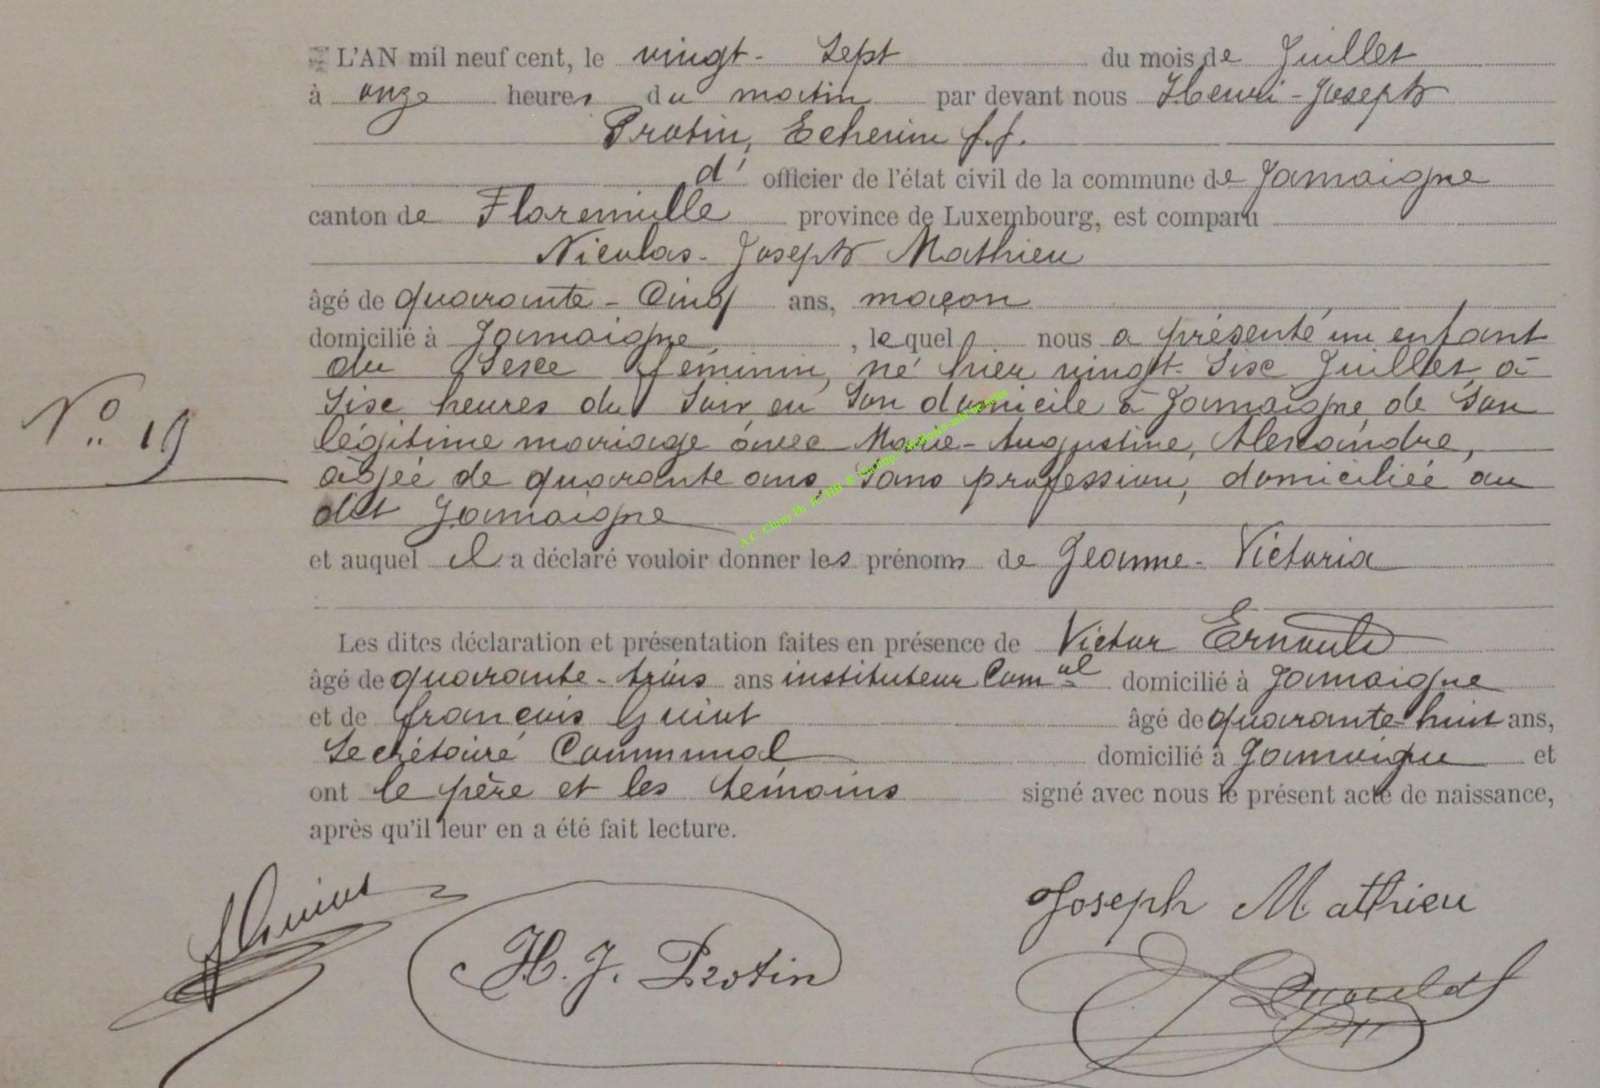 L'AN mil neuf cent, le vingt-sept du mois de Juillet
à onze heures du matin par devant nous Henri-Joseph
Protin, Echevin f.f.
d' officier de l'état civil de la commune de Jamoigne
canton de Florenville province de Luxembourg, est comparu
Nicolas-Joseph Mathieu
âgé de quarante-Cinq ans, maçon
domicilié à Jamoigne, lequel nous a présenté un enfant
du Sexe féminin, né hier vingt-Six Juillet, à
Six heures du soir en son domicile à Jamoigne de son
légitime mariage avec Marie-Augustine, Alexandre,
agée de quarante ans, sans profession, domiciliée au
dit Jamoigne
et auquel il a déclaré vouloir donner les prénoms de Jeanne-Victoria
N° 19
Les dites déclaration et présentation faites en présence de Victor
âgé de quarante-trois ans instituteur Com.al domicilié à Jamoigne
et de françois Guiot âgé de quarante-huit ans,
Secrétaire Communal domicilié à Jamoigne et
ont le père et les témoins signé avec nous le présent acte de naissance,
après qu'il leur en a été fait lecture.
Joseph Mathieu
H. J. Protin